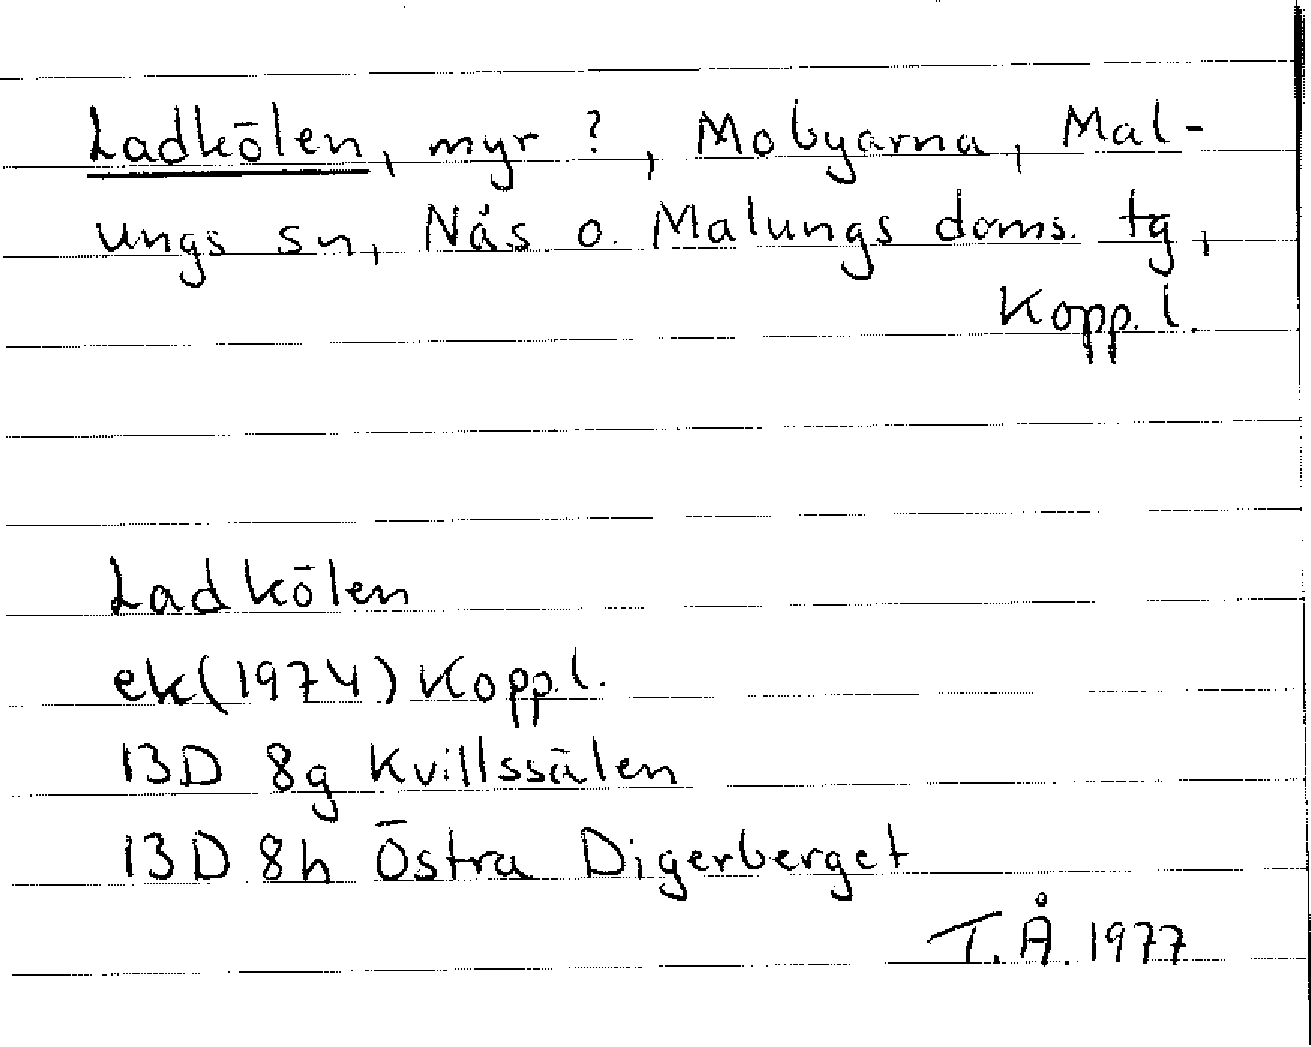 Ladkölen, myr ?, Mobyarna, Mal-
ungs sn, Näs o. Malungs doms. tg,
Kopp. l.
Ladkölen
ek(1974) Kopp.l.
13D 8g Kvillssälen
13D 8h Östra Digerberget
T.Å. 1977